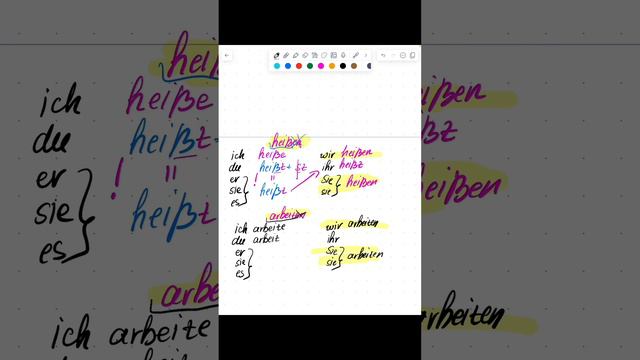 heißen
ich heiße
du heißt + st
er
sie heißt
es
wir heißen
ihr heißt
sie
sie heißen
arbeiten
ich arbeite
du arbeit
er
sie
es
wir arbeiten
ihr
sie
sie arbeiten